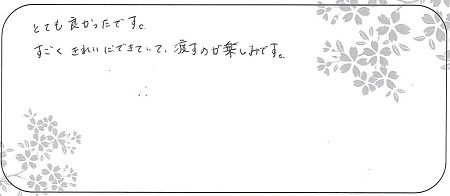 とても良かったです。
すごくきれいにできていて、渡すのが楽しみです。